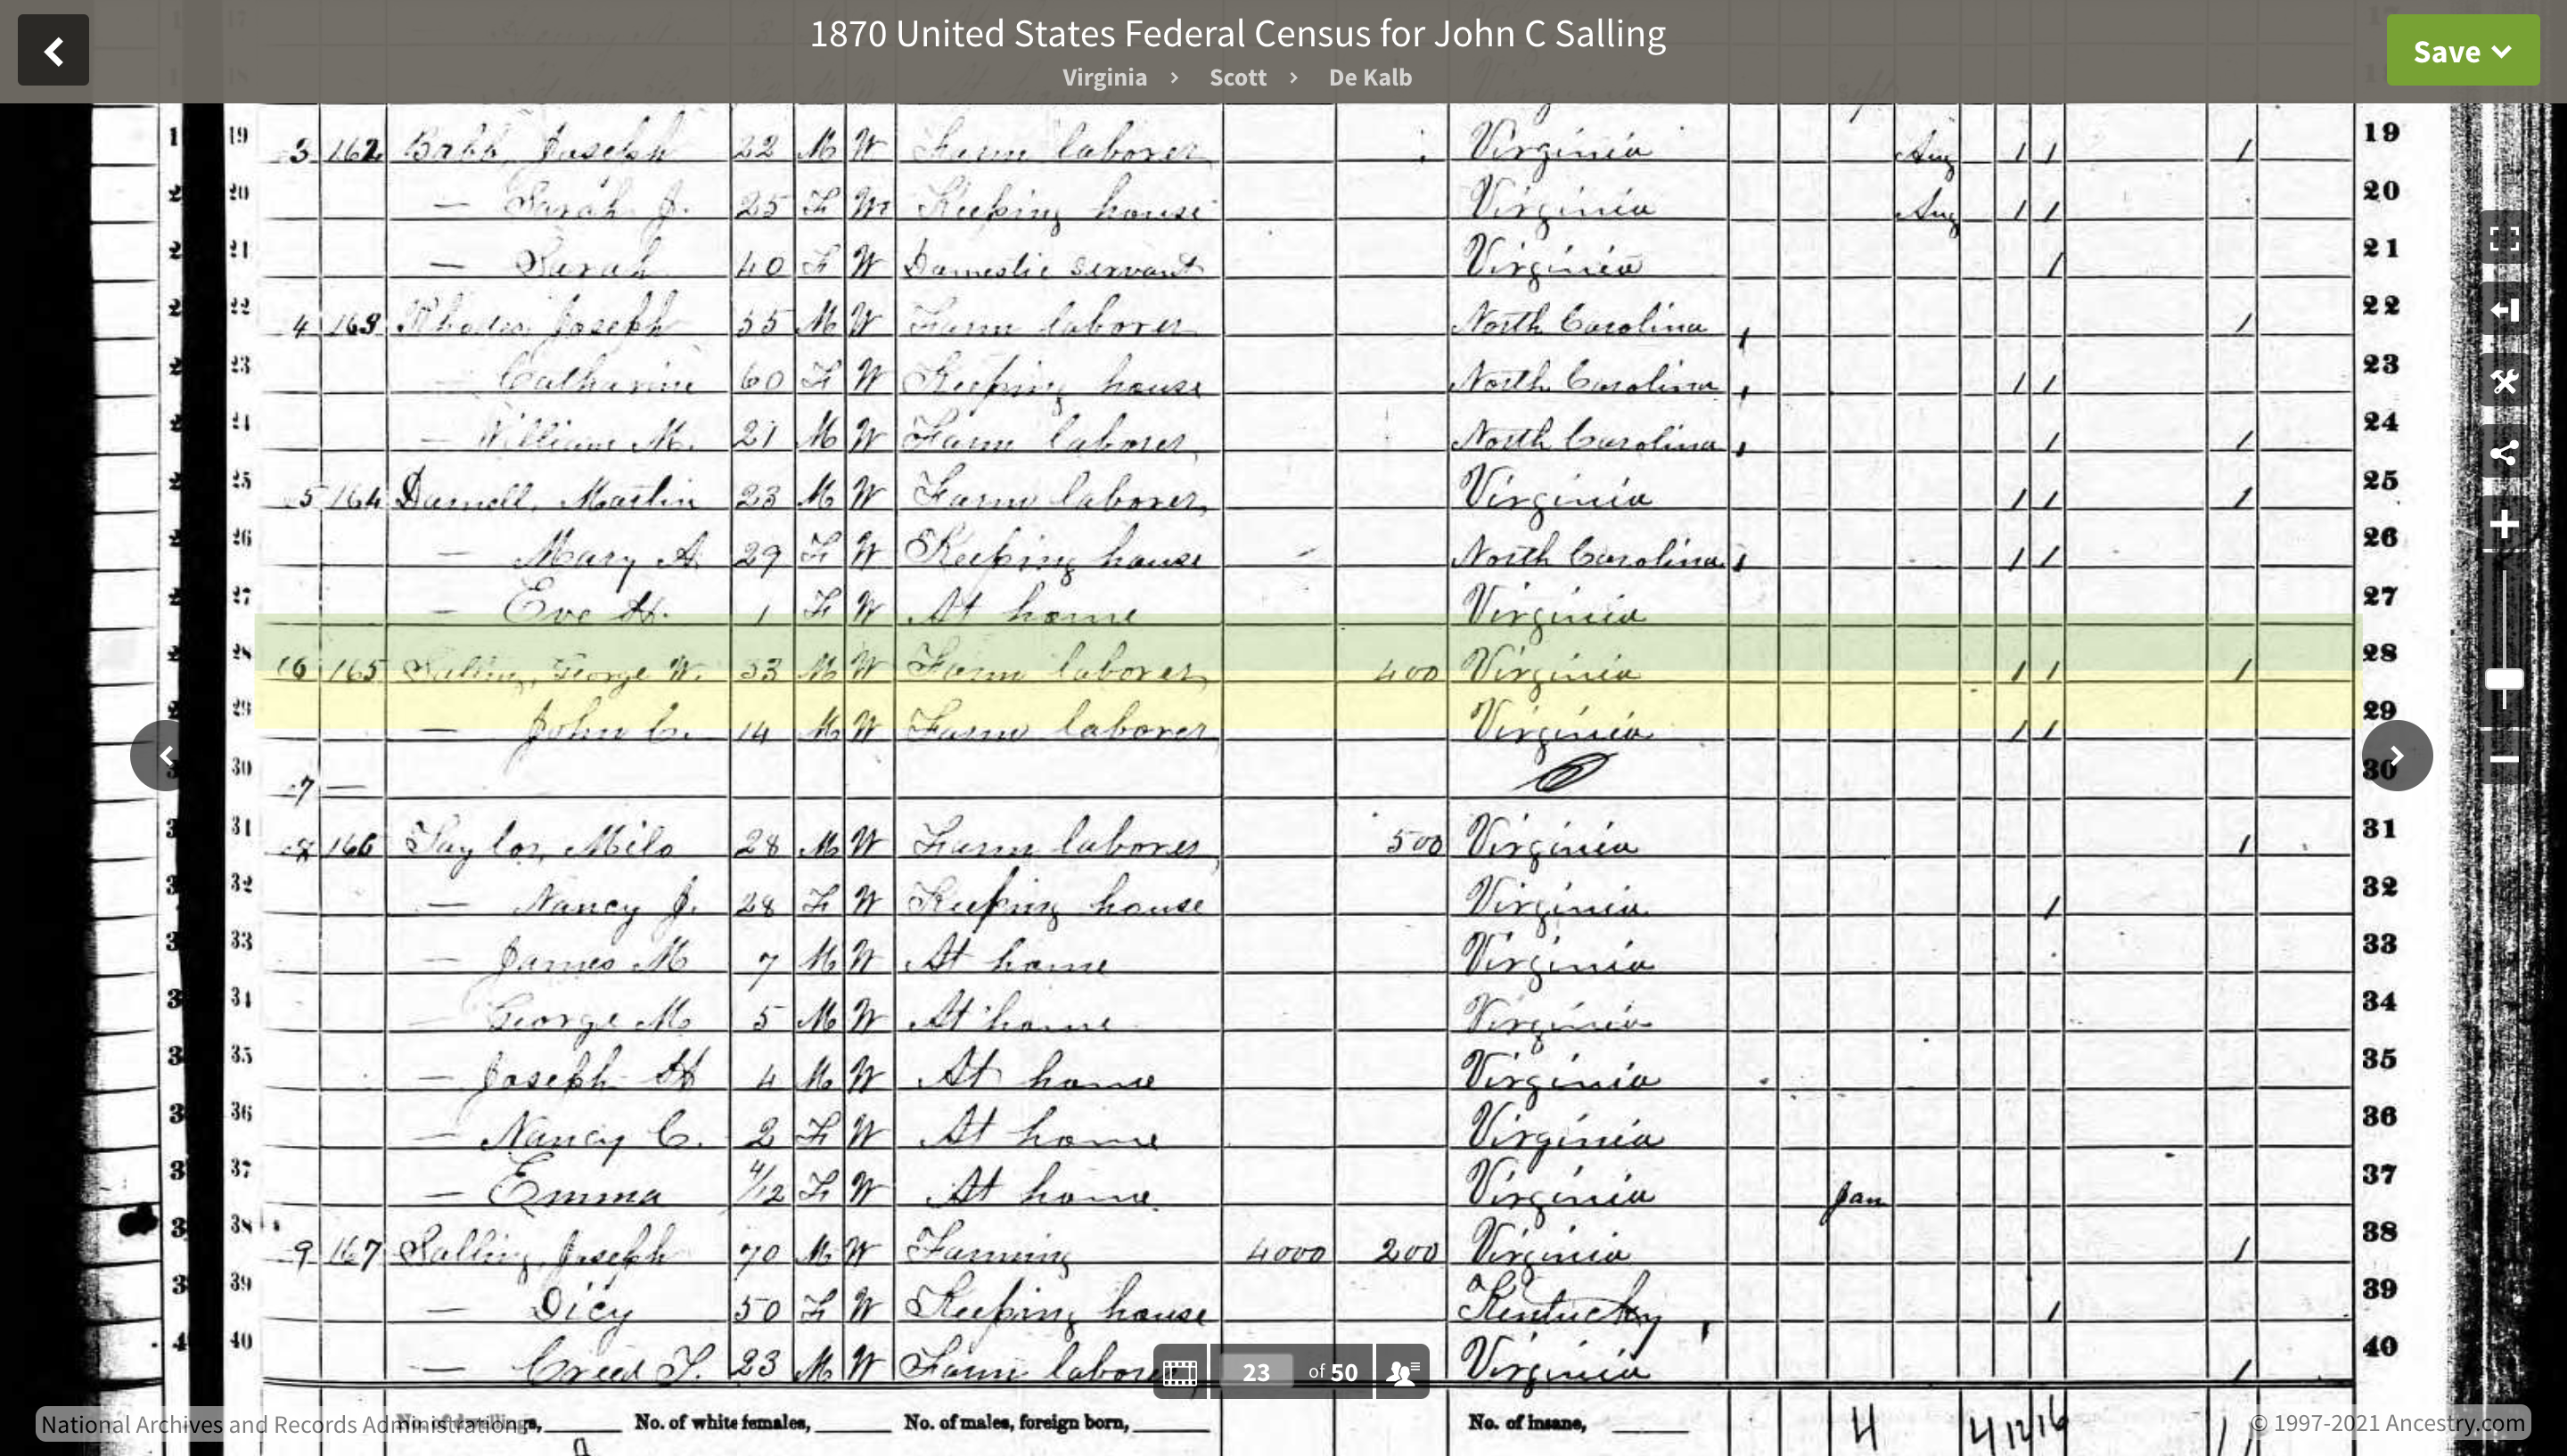 1870 United States Federal Census for John C Salling
Virginia > Scott > De Kalb
Save
19 3 162 Babb, Joseph 22 M W Farm laborer Virginia Aug 1 1 1 19
20 — Sarah J. 25 F W Keeping house Virginia Aug 1 1 20
21 — Sarah 40 F W Domestic servant Virginia 1 21
22 4 163 Rhodes, Joseph 55 M W Farm laborer North Carolina 1 22
23 Catharine 60 F W Keeping house North Carolina 1 1 23
24 — William M. 21 M W Farm laborer North Carolina 1 1 24
25 5 164 Darnell, Martin 23 M W Farm laborer Virginia 1 1 1 25
26 — Mary A. 29 F W Keeping house North Carolina 1 1 26
27 — Eve H. 1 F W At home Virginia 27
28 6 165 Salling, George W. 33 M W Farm laborer 400 Virginia 1 1 1 28
29 — John C. 14 M W Farm laborer Virginia 1 1 29
30 7 — 30
31 8 166 Taylor, Milo 28 M W Farm laborer 500 Virginia 1 31
32 — Nancy J. 28 F W Keeping house Virginia 1 32
33 — James M 7 M W At home Virginia 33
34 — George M 5 M W At home Virginia 34
35 — Joseph H 4 M W At home Virginia 35
36 — Nancy C. 2 F W At home Virginia 36
37 — Emma 4/12 F W At home Virginia Jan 37
38 9 167 Salling, Joseph 70 M W Farming 4000 200 Virginia 1 38
39 — Dicy 50 F W Keeping house Kentucky 1 39
40 — Creed T. 23 M W Farm labore Virginia 1 40
23 of 50
No. of dwellings, No. of white females, No. of males, foreign born, No. of insane, 4 4 12 16 11
National Archives and Records Administration
© 1997-2021 Ancestry.com